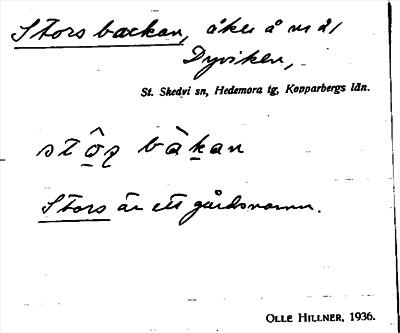 Stors backan, åker å nr 21
Dyviken,
St. Skedvi sn, Hedemora tg, Kopparbergs län.
stôʒ bàkan
Stors är ett gårdsnamn.
OLLE HILLNER, 1936.